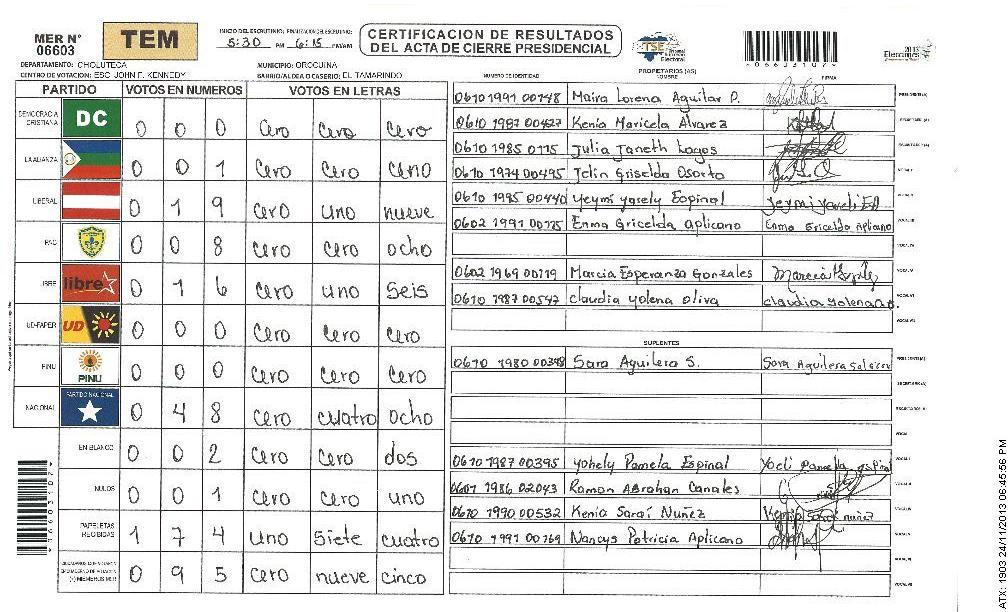 MER N° 06603
TEM
INICIO DEL ESCRUTINIO: 5:30 PM FINALIZACION DEL ESCRUTINIO: 6:15 PM/AM
CERTIFICACION DE RESULTADOS
DEL ACTA DE CIERRE PRESIDENCIAL
TSE Tribunal Supremo Electoral
*06603107*
Elecciones 2013
DEPARTAMENTO: CHOLUTECA
MUNICIPIO: OROCUINA
CENTRO DE VOTACION: ESC. JOHN F. KENNEDY
BARRIO/ALDEA O CASERIO: EL TAMARINDO
PARTIDO VOTOS EN NUMEROS VOTOS EN LETRAS
DEMOCRACIA CRISTIANA DC 0 0 0 Cero Cero Cero
LA ALIANZA 0 0 1 Cero Cero
LIBERAL 0 1 9 Cero uno nueve
PAC 0 0 8 Cero Cero ocho
LIBRE libre 0 1 6 Cero uno Seis
UD-FAPER UD 0 0 0 Cero Cero Cero
PINU PINU 0 0 0 Cero Cero Cero
NACIONAL PARTIDO NACIONAL 0 4 8 Cero cuatro ocho
EN BLANCO 0 0 2 Cero Cero dos
NULOS 0 0 1 Cero Cero uno
PAPELETAS RECIBIDAS 1 7 4 uno Siete cuatro
(+) MIEMBROS MER 0 9 5 Cero nueve cinco
NUMERO DE IDENTIDAD PROPIETARIOS (AS) NOMBRE FIRMA
0610 1991 00148 Maira Lorena Aguilar P. PRESIDENTE(A)
0610 1987 00427 Kenia Maricela Alvarez SECRETARIO (A)
0610 1985 0115 Julia Janeth Lagos ESCRUTADOR (A)
0610 1974 00495 Jelin Griselda Osorto VOCAL I
0610 1995 00440 Yeymi Yosely Espinal
0602 1991 00125 Enma Gricelda Aplicano Enma Gricelda Aplicano VOCAL III
VOCAL IV
0602 1969 00119 Marcia Esperanza Gonzales VOCAL V
0610 1987 00547 Claudia Yolena Oliva Claudia Yolena O. VOCAL VI
VOCAL VII
SUPLENTES
0610 1980 00348 Sara Aguilera S. Sara Aguilera PRESIDENTE(A)
SECRETARIO (A)
ESCRUTADOR (A)
VOCAL I
0610 1987 00395 Yohely Pamela Espinal
0601 1986 02043 Ramon Abrahan Canales
0610 1990 00532 Kenia Saraí Nuñez
0610 1991 00169 Nancys Patricia Aplicano VOCAL V
VOCAL VI
VOCAL VII
*06603107*
ATX: 1903 24/11/2013 06:45:56 PM